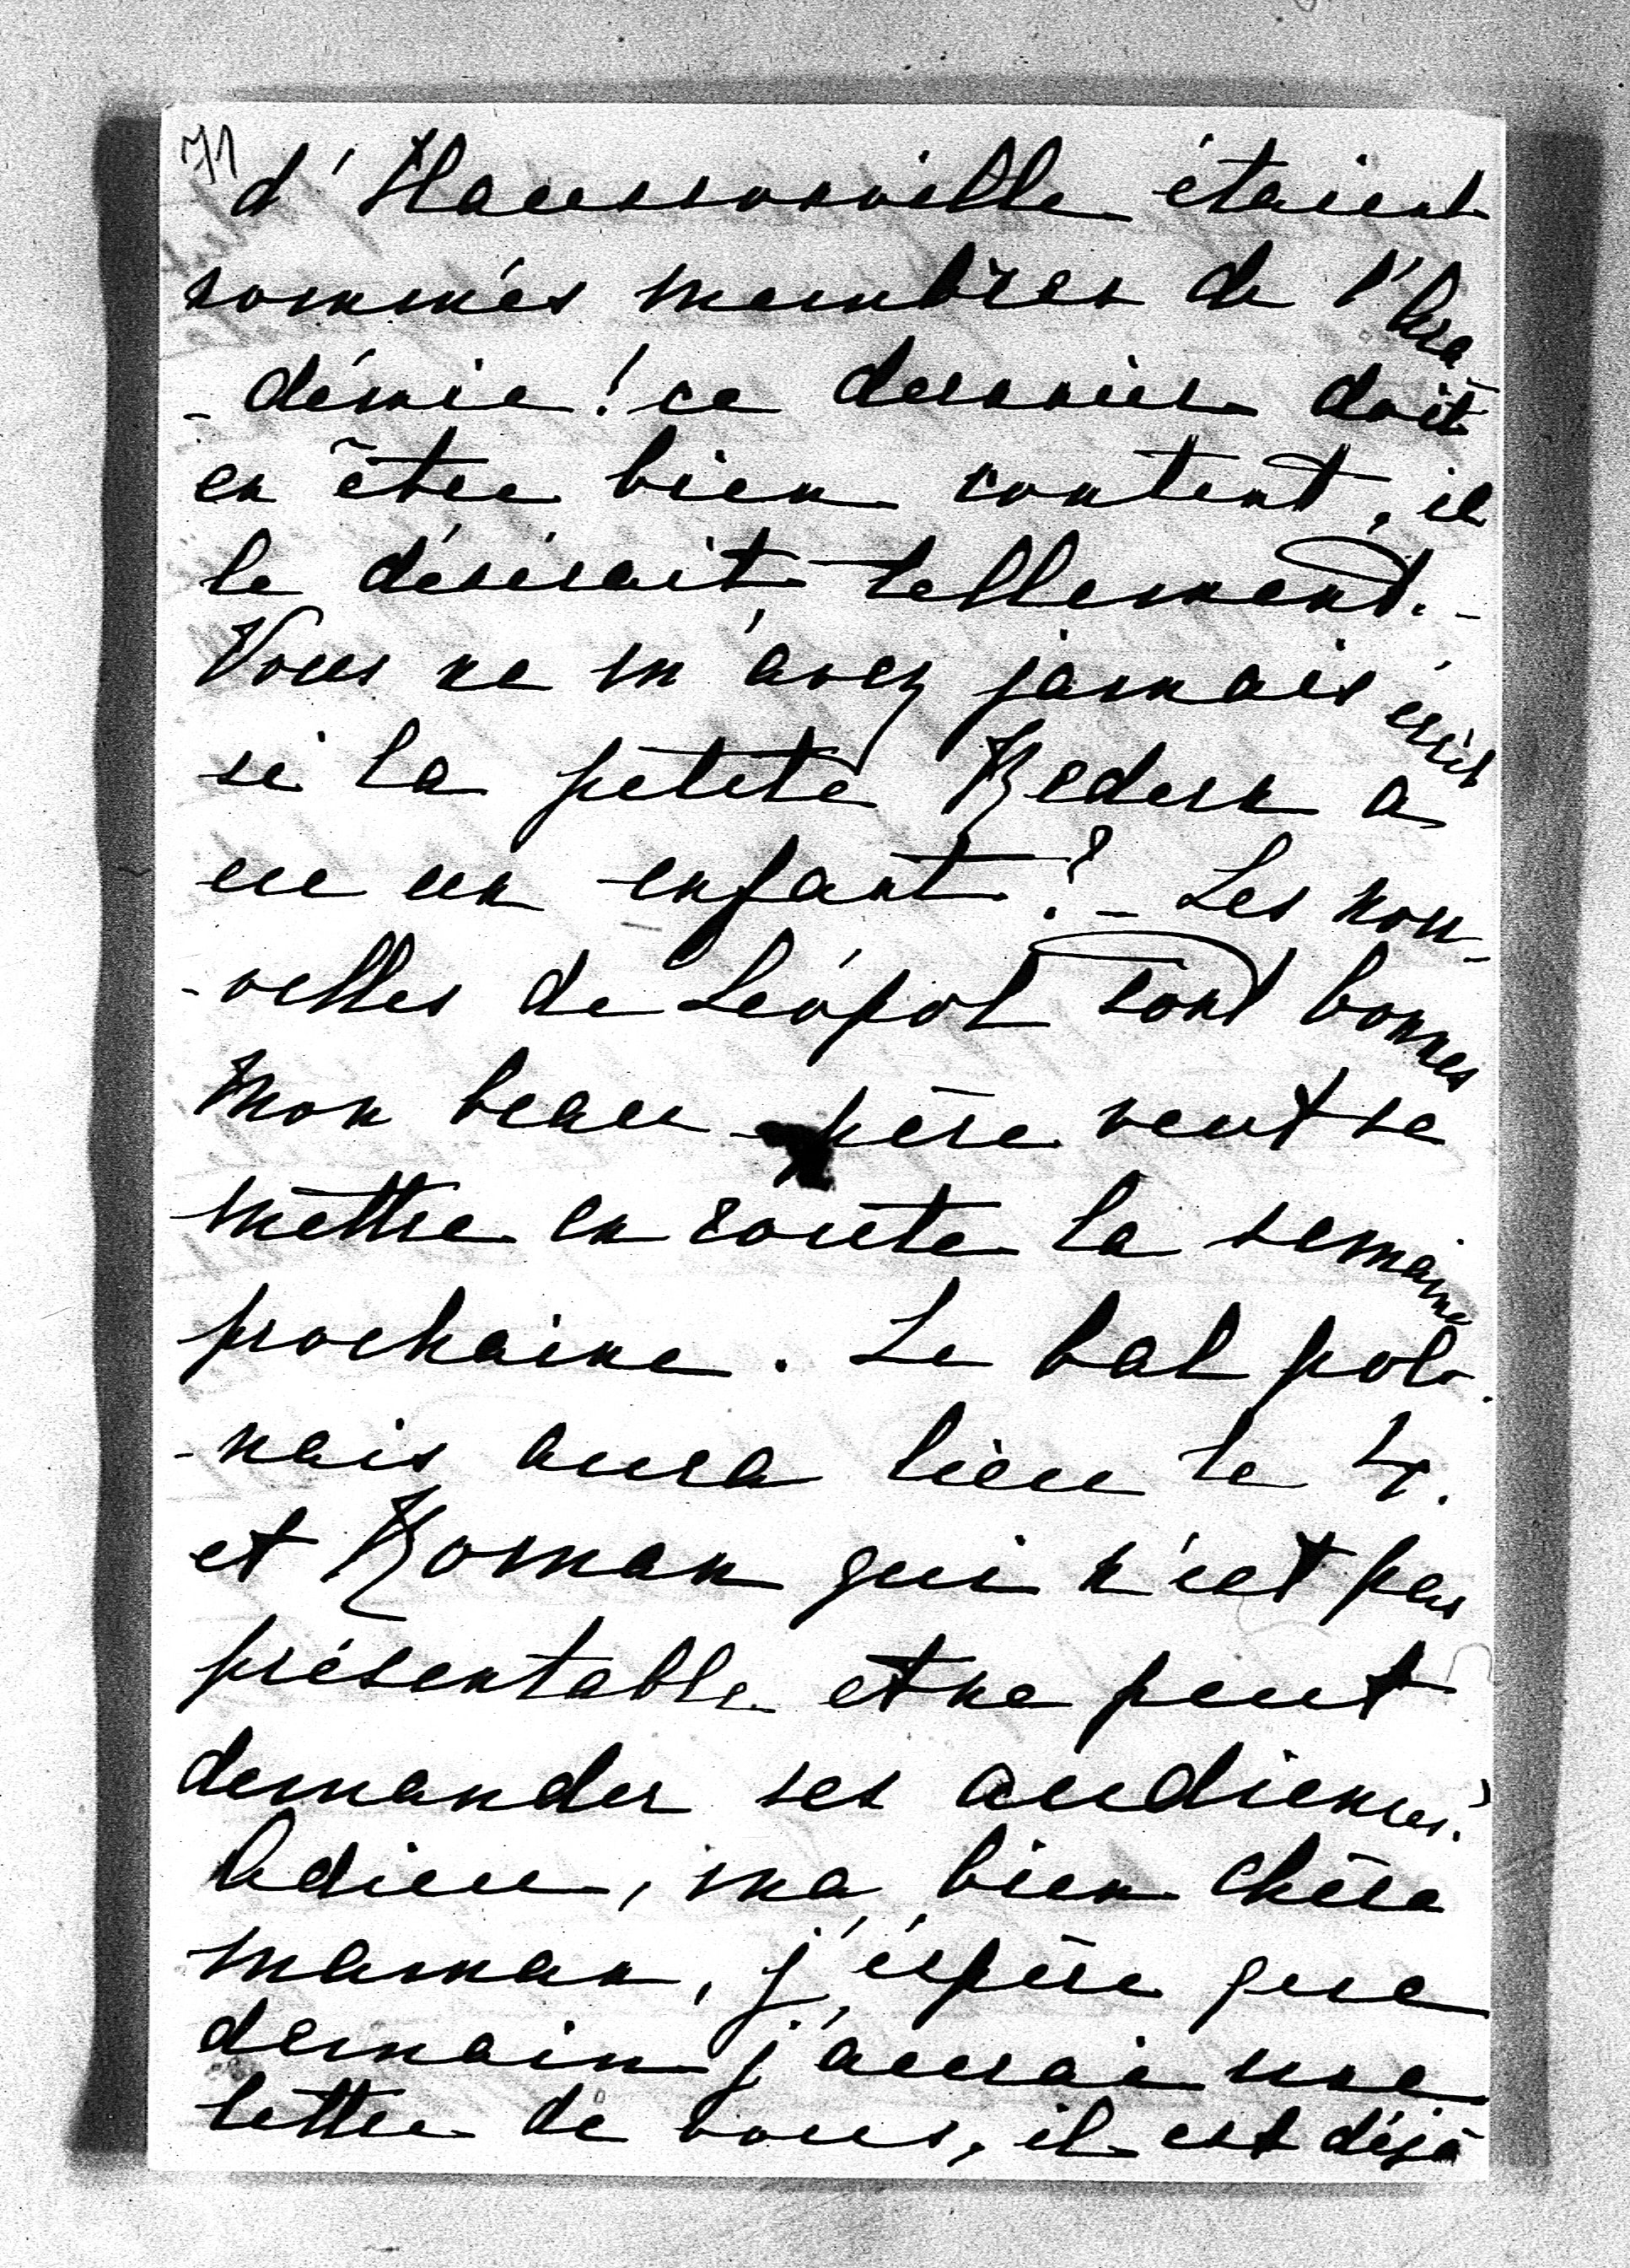 71
d'Haussonville étaient
nommés membres de l'Aca
-démie! ce dernier doit
en être bien content, il
le désirait tellement. -
Vous ne m'avez jamais écrit
si la petite Redern a
eu un enfant? - Les nou-
-velles de Léopol sont bonnes
Mon beau-père veut se
mettre en route la semaine
prochaine. Le bal polo-
-nais aura lieu le 4.
et Roman qui n'est pas
présentable et ne peut
demander ses audiences!
Adieu, ma bien chère
maman, j'éspère que
demain j'aurai une
lettre de vous, il est déjà